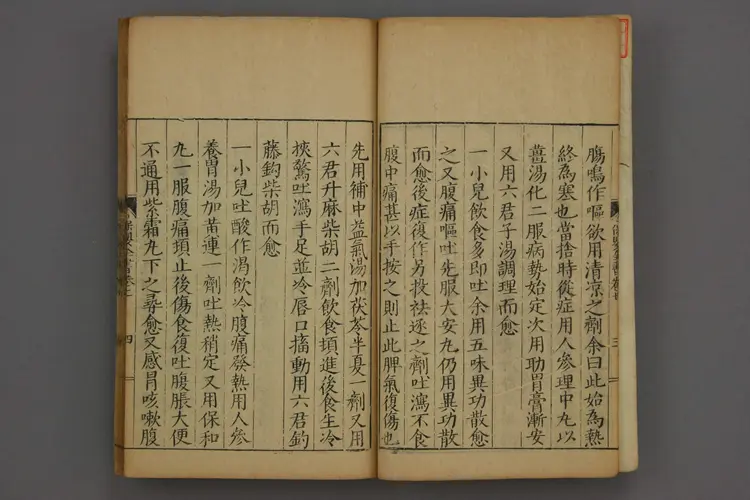 腸鳴作嘔欲用清凉之劑余曰此始為熱
終為寒也當捨時從症用人參理中丸以
薑湯化二服病勢始定次用助胃膏漸安
又用六君子湯調理而愈
一小兒飲食多即吐余用五味異功散愈
之又腹痛嘔吐先服大安丸仍用異功散
而愈後症復作另投祛逐之劑吐瀉不食
腹中痛甚以手按之則止此脾氣復傷也
三
先用補中益氣湯加茯苓半夏一劑又用
六君升麻柴胡二劑飲食頃進後食生冷
挾驚吐瀉手足並冷唇口搐動用六君鈎
藤鈎柴胡而愈
一小兒吐酸作渴飲冷腹痛發熱用人參
養胃湯加黃連一劑吐熱稍定又用保和
丸一服腹痛頃止後傷食復吐腹脹大便
不通用紫霜丸下之尋愈又感冒咳嗽腹
四